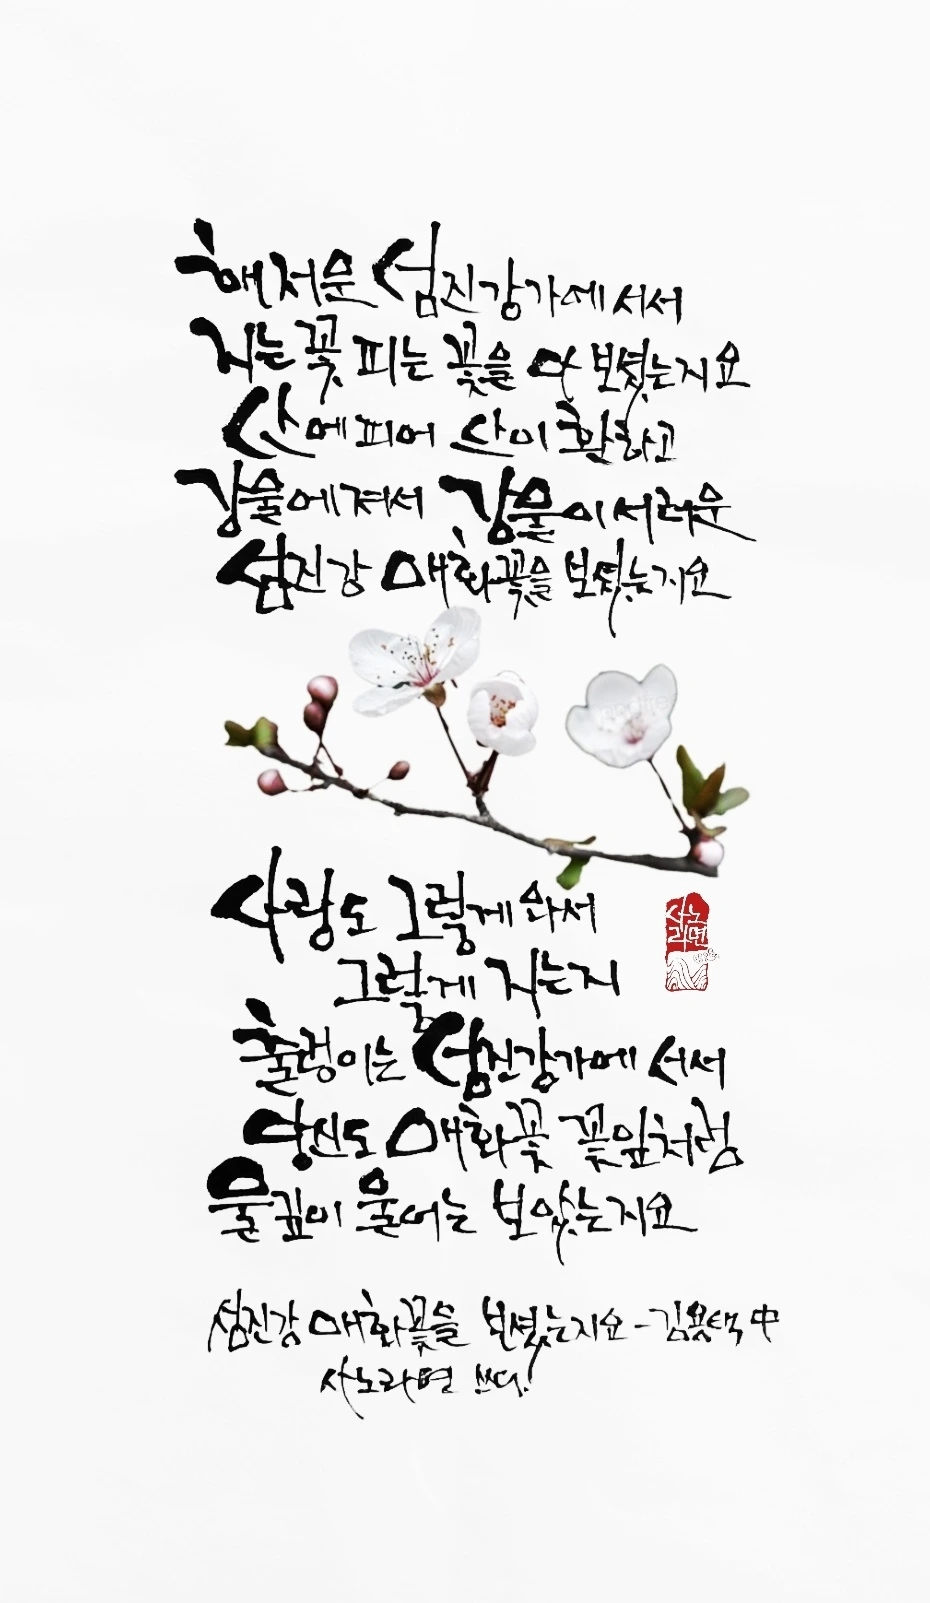 해 저문 섬진강가에 서서
지는 꽃 피는 꽃을 다 보셨는지요
산에 피어 산이 환하고
강물에 져서 강물이 서러운
섬진강 매화꽃을 보셨는지요
사랑도 그렇게 와서
그렇게 지는지
출렁이는 섬진강가에 서서
당신도 매화꽃 꽃잎처럼
물깊이 울어는 보았는지요
사노
라면
섬진강 매화꽃을 보셨는지요 - 김용택 中
사노라면 쓰다!